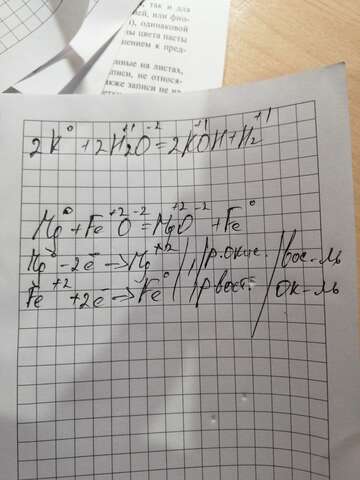 так и для
ей, или фио-
), одинаковой
лы цвета пасты
нением к пред-
нные на листах,
аписи, не относя-
акже записи не на
2K⁰ + 2H₂⁺¹O⁻² = 2K⁺¹OH + H₂⁺¹
Mg⁰ + Fe⁺²O⁻² = Mg⁺²O⁻² + Fe⁰
Mg⁰ - 2e⁻ → Mg⁺² | 1 | р.окис. / вос-ль
Fe⁺² + 2e⁻ → Fe⁰ | 1 | р вост. / ок-ль